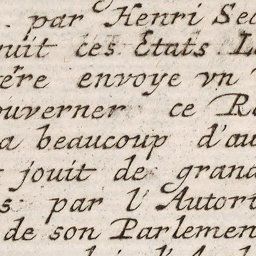 par Henri Se
nuit ces Etats L
ere envoye vn
ouverner ce R
a beaucoup d'au
jouit de grand
s par l'Autori
de son Parlemen